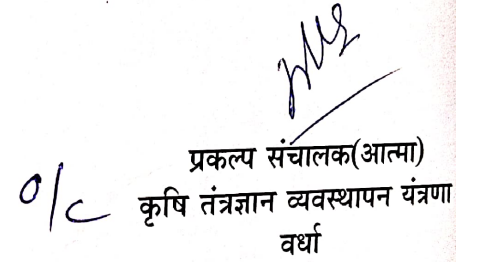 प्रकल्प संचालक(आत्मा)
o/c कृषि तंत्रज्ञान व्यवस्थापन यंत्रणा
वर्धा